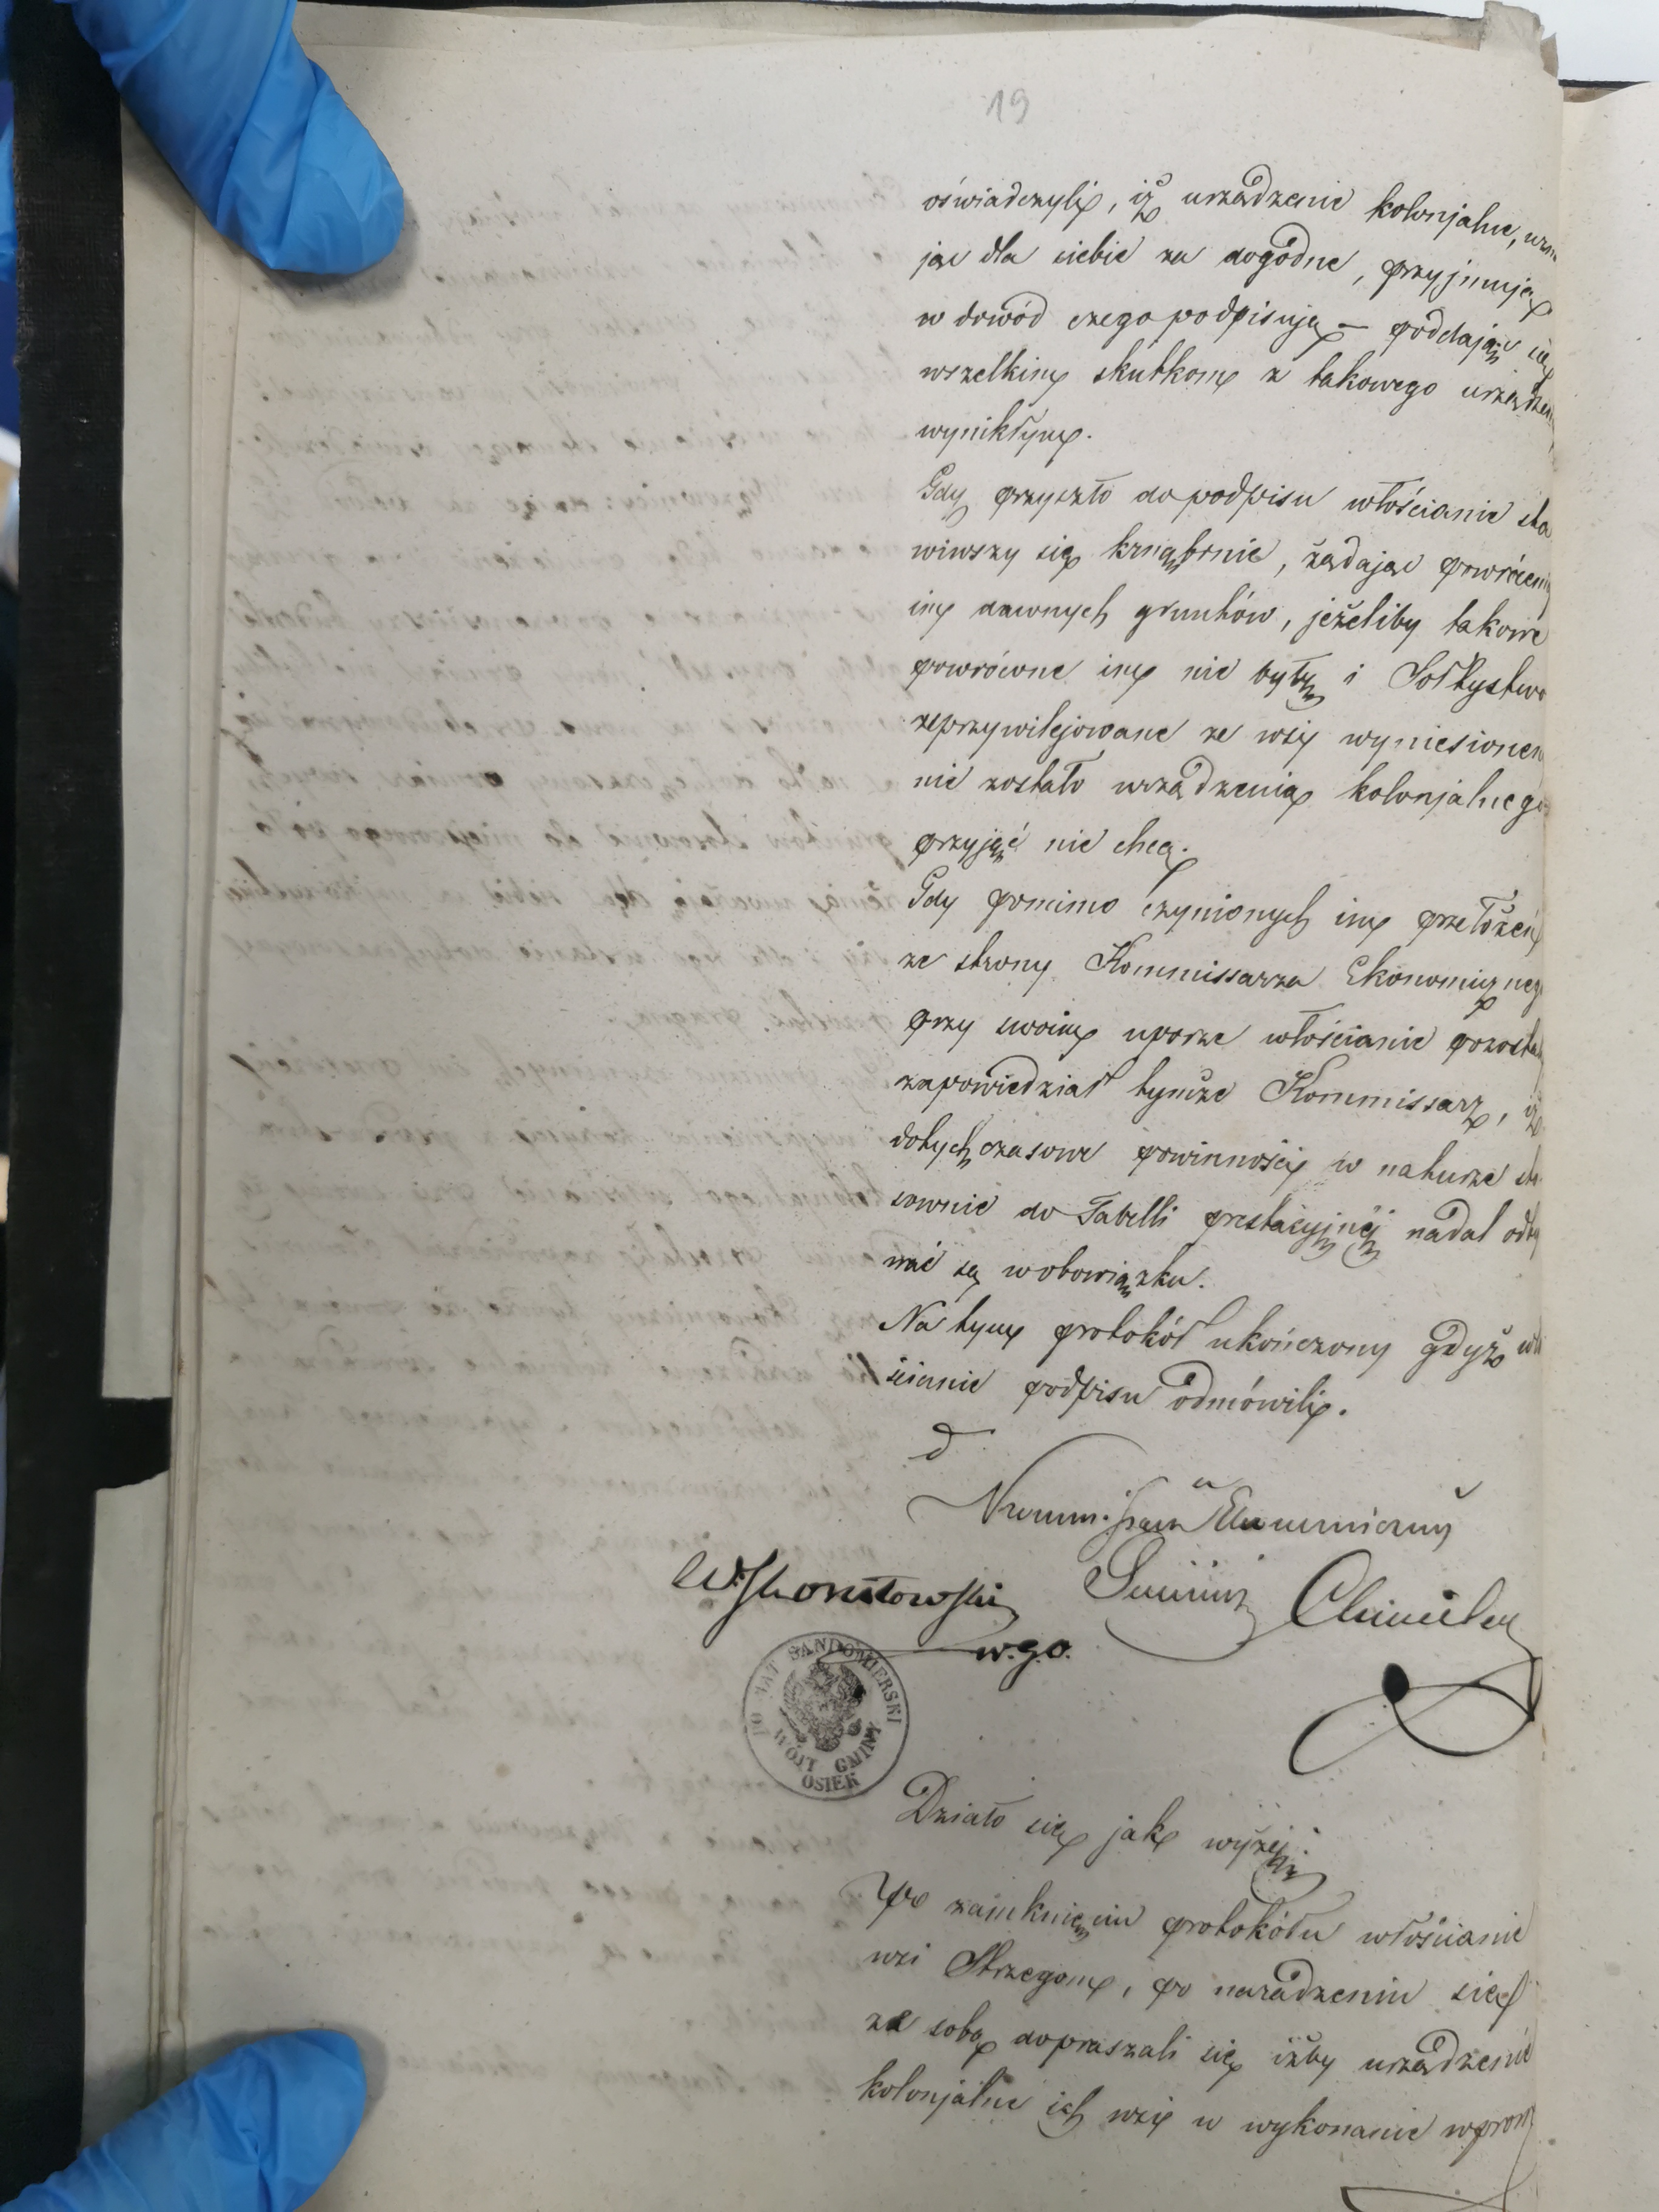 19
oświadczyli, iż urządzenie kolonjalne, uzna
jąc dla siebie za dogodne, przyjmują
w dowód czego podpisują – poddając się
wszelkim skutkom z takowego urządzen
wynikłym.
Gdy przyszło do podpisu włościanie sta
wiwszy się krnąbrnie, żądając powrócenia
im dawnych gruntów, jeżeliby takowe
powrócone im nie były i Sołtystwo
zeprzywilejowane ze wsi wyniesionem
nie zostało urządzenia kolonjalnego
przyjąć nie chcą.
Gdy pomimo czynionych im przełożeń
ze strony Kommissarza Ekonomicznego
przy swoim uporze włościanie pozostali
zapowiedział tymże Kommissarz, iż
dotychczasowe powinności w naturze sto
sownie do Tabelli prestacyjnéj nadal odby
wać są w obowiązku.
Na tym protokół ukończony gdyż wło
ścianie podpisu odmówili.
Kommissarz Ekonomiczny
w.g.o.
POWIAT SANDOMIERSKI
WÓJT GMINY
OSIEK
Działo się jak wyżéj
Po zamknięciu protokółu włościanie
wsi Strzegom, po naradzeniu się
ze sobą dopraszali się iżby urządzenie
kolonjalne ich wsi w wykonanie wprow